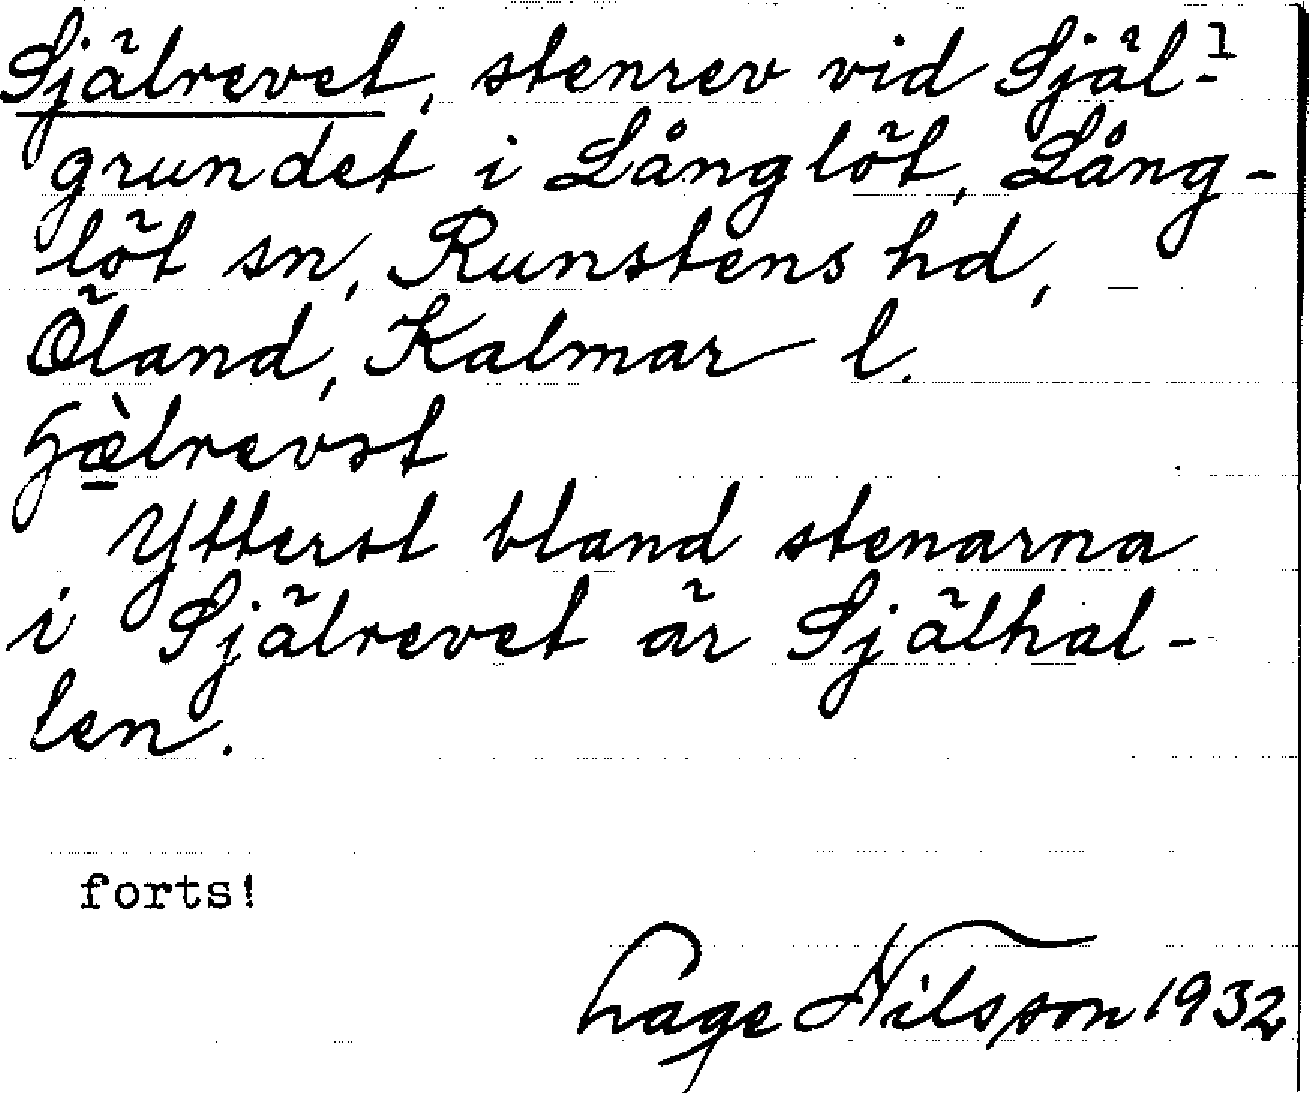 Självrevet, stenrev vid Själ-1
grundet i Långlöt, Lång-
löt sn, Runstens hd,
Öland, Kalmar l.
Ytterst bland stenarna
i Själrevet är Själhal-
len.
forts!
Lage Nilsson 1932